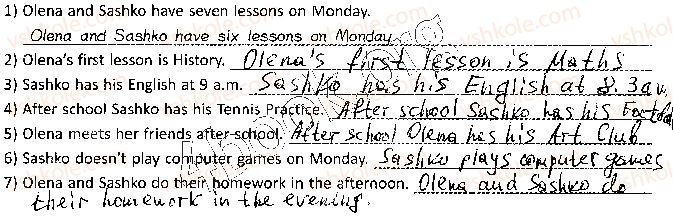 1) Olena and Sashko have seven lessons on Monday.
Olena and Sashko have six lessons on Monday.
2) Olena's first lesson is History. Olena's first lesson is Maths
3) Sashko has his English at 9 a.m. Sashko has his English at 8.
4) After school Sashko has his Tennis Practice. After school Sashko has his
5) Olena meets her friends after school. After school Olena has his Art Club
6) Sashko doesn't play computer games on Monday. Sashko plays computer games
7) Olena and Sashko do their homework in the afternoon. Olena and Sashko do
their homework in the evening.